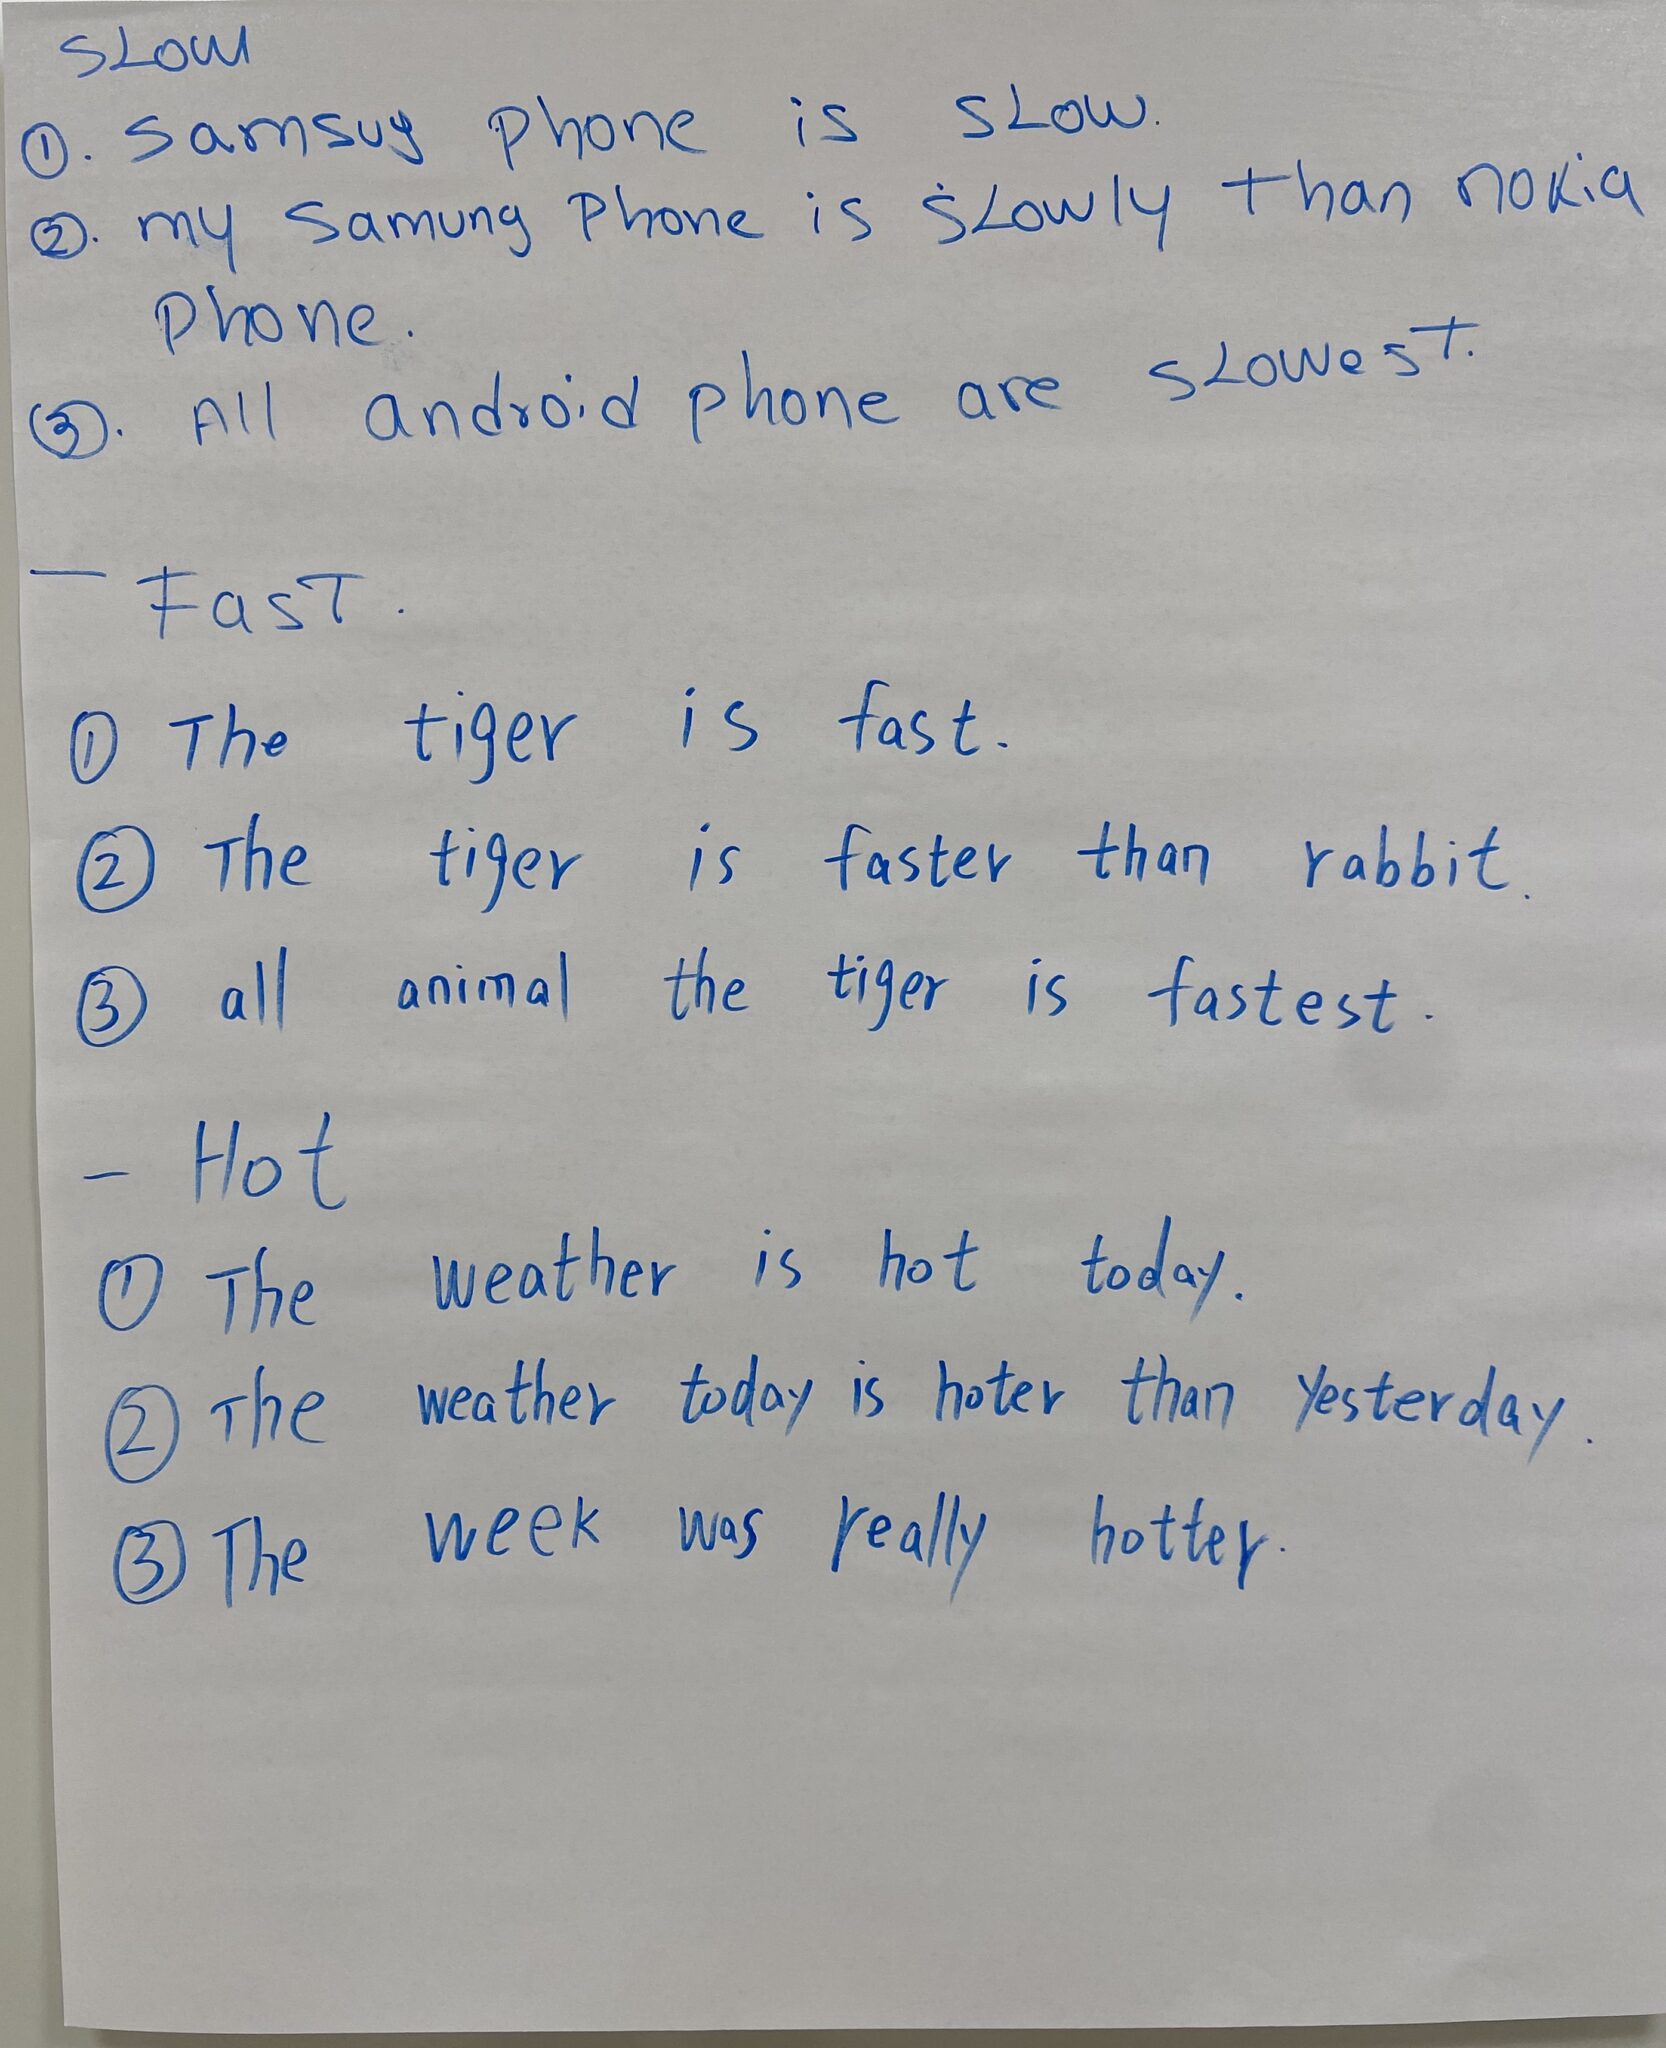 SLOW
①. Samsug phone is sLow.
②. my Samung Phone is sLowly than nokia
phone.
③. All android phone are sLowesT.
— FasT.
① The tiger is fast.
② The tiger is faster than rabbit.
③ all animal the tiger is fastest.
– Hot
① The weather is hot today.
② The weather today is hoter than yesterday.
③ The week was really hotter.